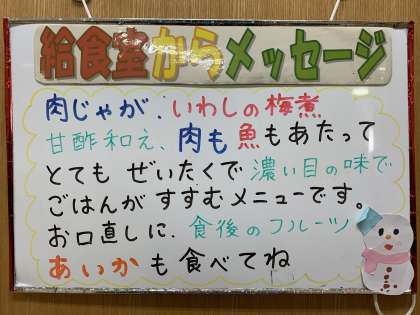 給食室からメッセージ
肉じゃが、いわしの梅煮
甘酢和え、肉も魚もあたって
とても ぜいたくで濃い目の味で
ごはんが すすむメニューです。
お口直しに、食後のフルーツ
あいかも食べてね